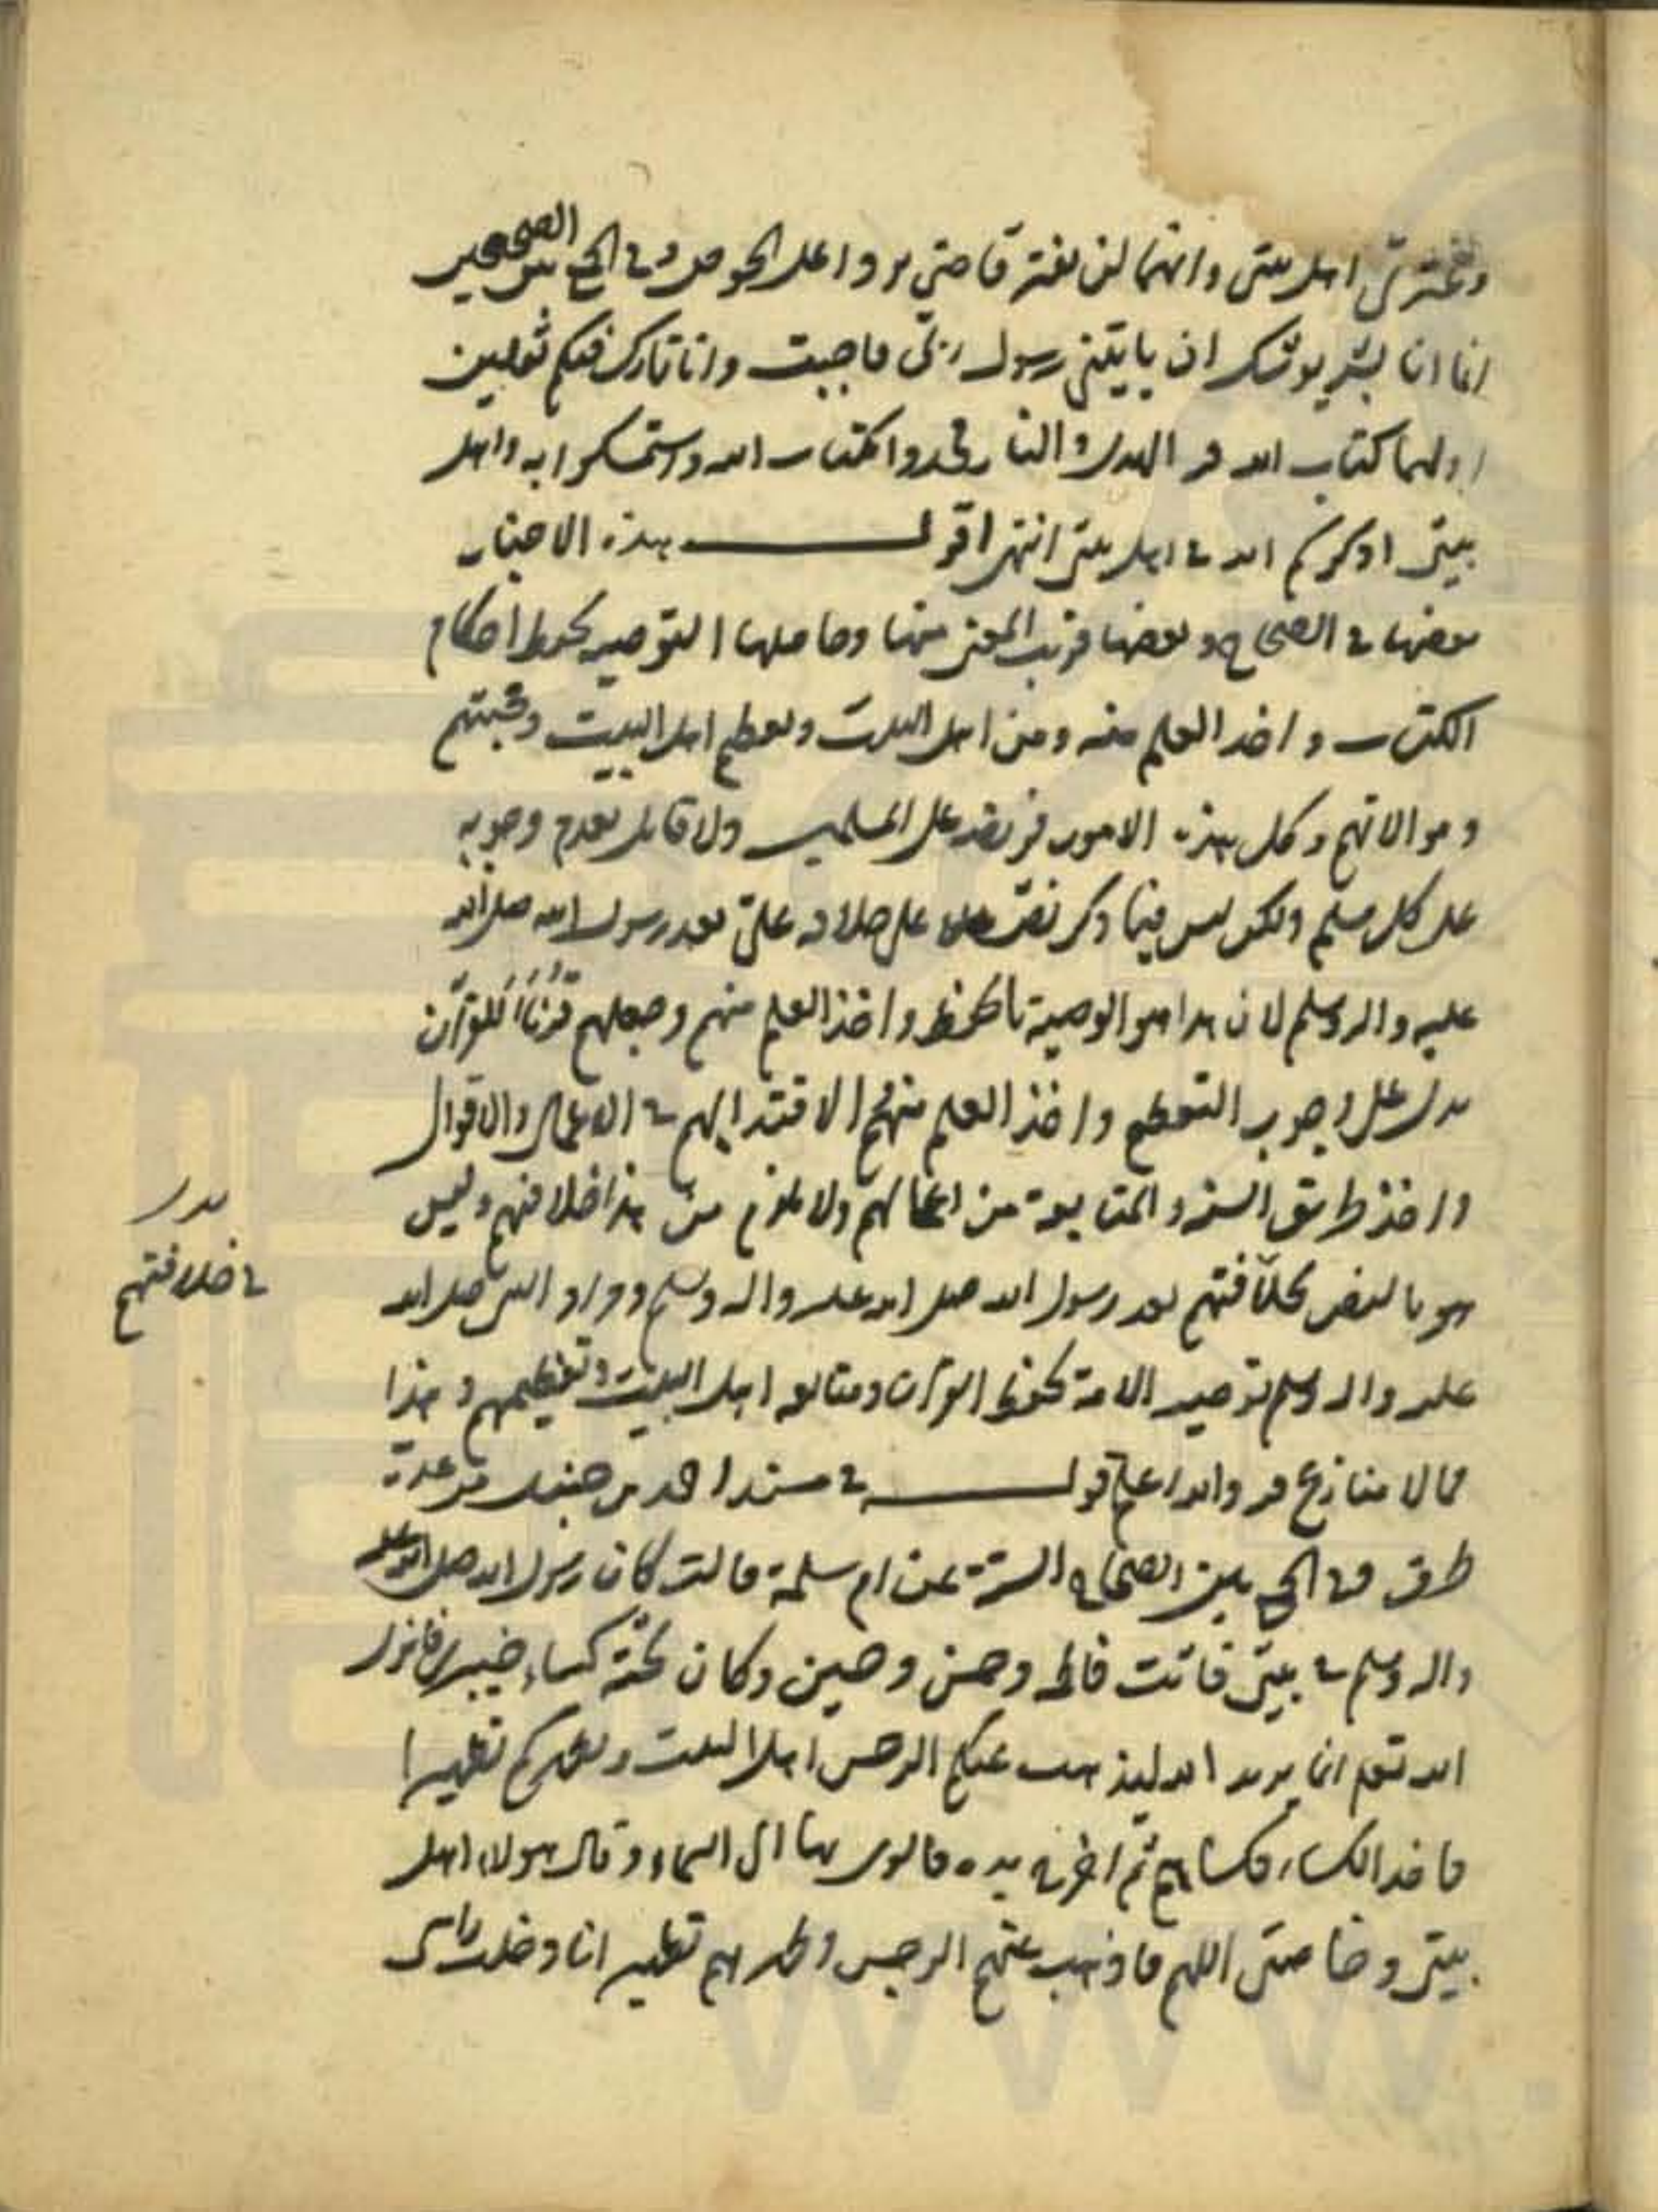 وعترتی اهل بیتی وانهما لن یفترقا حتی یردا علی الحوض وفی الجمع بین الصحیحین
انما انا بشر یوشک ان یاتینی رسول ربی فاجیب وانا تارک فیکم ثقلین
اولهما کتاب الله فیه الهدی والنار فخذوا بکتاب الله واستمسکوا به واهل
بیتی اذکرکم الله فی اهل بیتی انتهی اقول هذه الاخبار
بعضها فی الصحاح وبعضها قریب المعنی منها وحاصلها التوصیه بحفظ احکام
الکتاب واخذ العلم منه ومن اهل البیت وتعظیم اهل البیت ومحبتهم
وموالاتهم وکل هذه الامور فریضه علی المسلمین ولا قائل بعدم وجوبه
علی کل مسلم ولکن لیس فیما ذکر نص علی خلافه علی بعد رسول الله صلی الله
علیه واله وسلم لان هذا هو الوصیة بالحفظ واخذ العلم منهم وجعلهم قرناً للقرآن
یدل علی وجوب التعظیم واخذ العلم منهم الاقتدا بهم فی الاعمال والاقوال
واخذ طریق السنه والمتابعة من اعمالهم ولا یلزم من هذا خلافتهم ولیس
هو بالنص بخلافتهم بعد رسول الله صلی الله علیه واله وسلم ومراد النبی صلی الله
علیه واله وسلم توصیه الامة بحفظ القرآن ومتابعه اهل البیت وتعظیمهم وهذا
مما لا منازع فیه والله اعلم قوله فی مسند احمد بن حنبل من عدة
طرق وفی الجمع بین الصحاح الستة عن ام سلمة قالت کان رسول الله صلی الله علیه
واله وسلم فی بیتی فاتت فاطمه وحسن وحسین وکان تحته کساء خیبری فانزل
الله تعم انما یرید الله لیذهب عنکم الرجس اهل البیت ویطهرکم تطهیرا
فاخذ الکساء وکساهم ثم اخرج یده فالوی بها الی السماء وقال هولاء اهل
بیتی وخاصتی اللهم فاذهب عنهم الرجس وطهرهم تطهیرا فادخلت راسی
یدل
فی خلافتهم